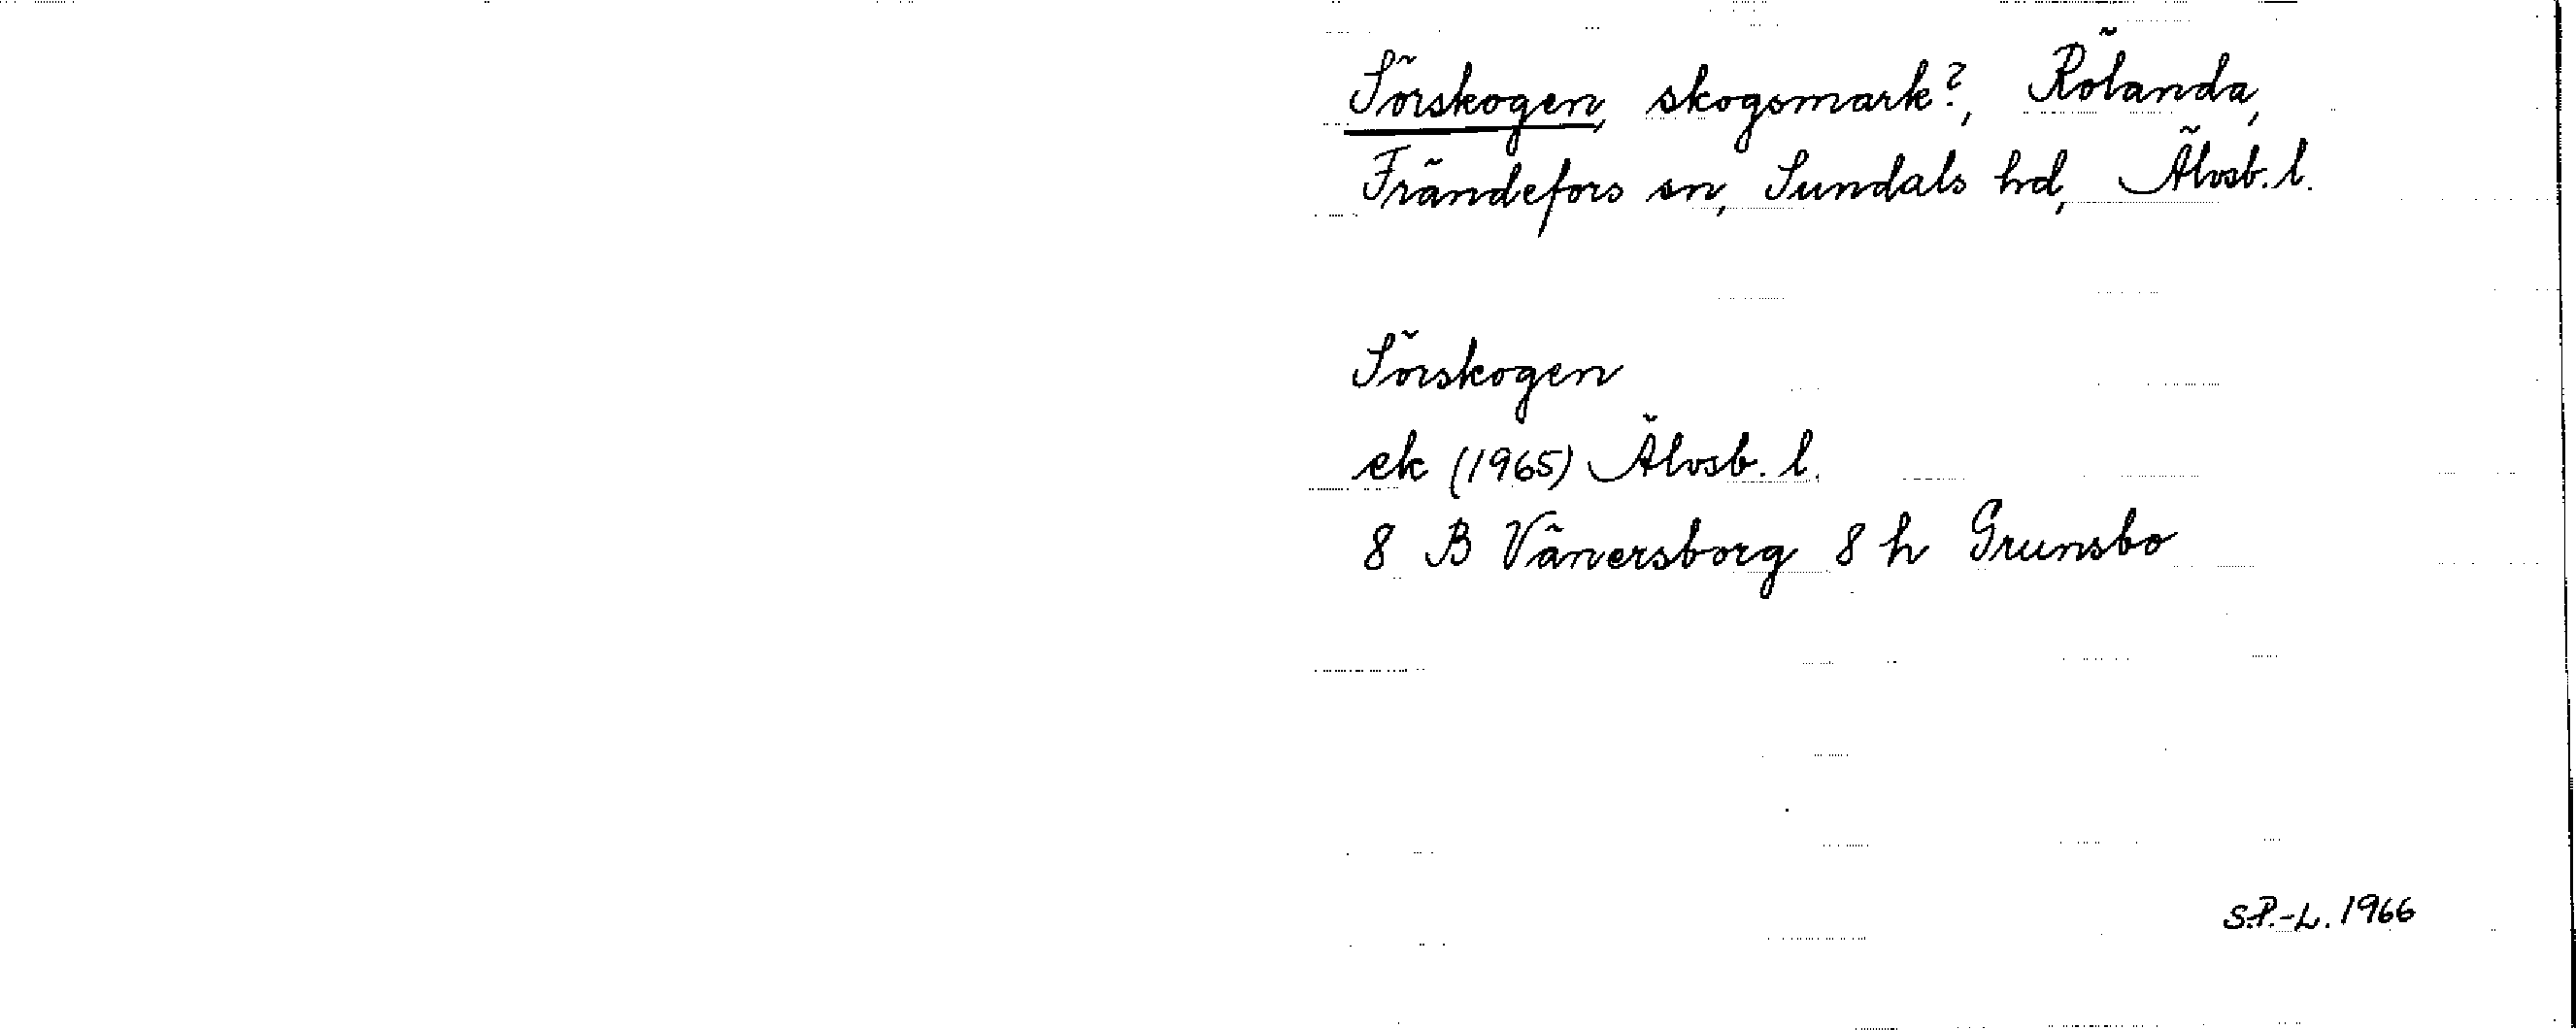 Sörskogen, skogsmark?, Rölanda,
Frändefors sn, Sundals hd, Älvsb. l.
Sörskogen
ek (1965) Älvsb. l.
8 B Vänersborg 8 h Grunsbo
S.P.-L. 1966